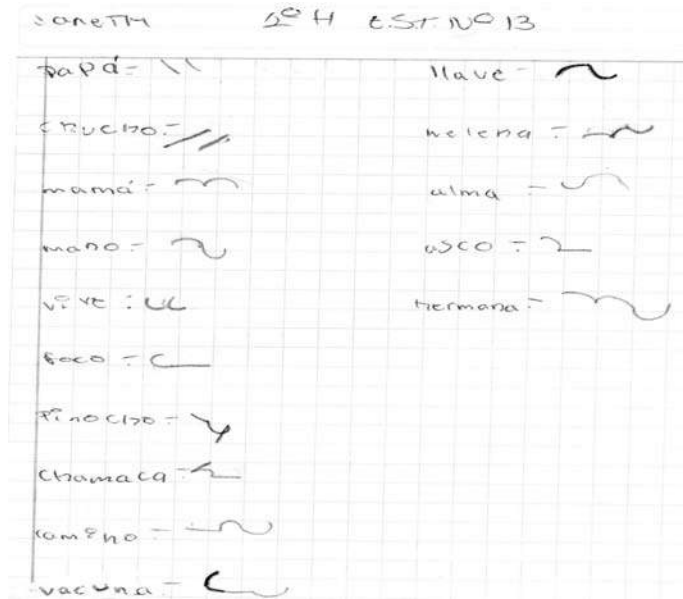 Janeth 2º H E.S.T. Nº 13
papá =
chucho =
mamá =
mano =
vive =
foco =
Pinocho =
chamaca =
camino =
vacuna =
llave =
helena =
alma =
asco =
hermana =